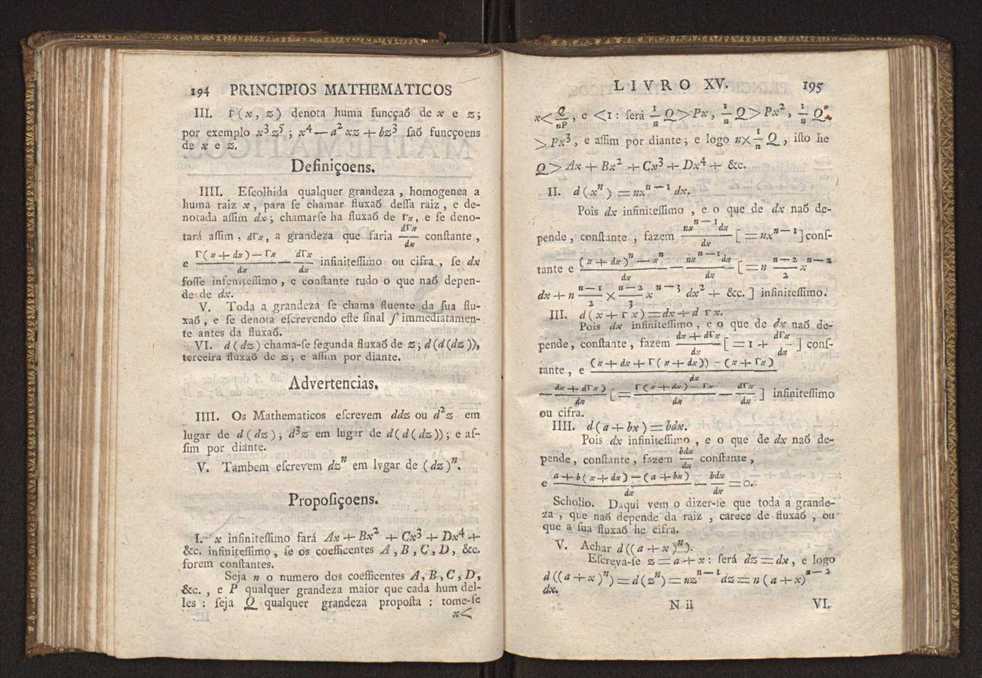 194 PRINCIPIOS MATHEMATICOS
III. Γ(x, z) denota huma funcçaõ de x e z;
por exemplo x³z⁵; x⁴ — a² xz + bz³ ſaõ funcçoens
de x e z.
Definiçoens.
IIII. Eſcolhida qualquer grandeza, homogenea a
huma raiz x, para ſe chamar fluxaõ deſſa raiz, e de-
notada aſſim dx; chamarſe ha fluxaõ de Γx, e ſe deno-
tará aſſim, dΓx, a grandeza que faria dΓx/dx conſtante,
e (Γ(x + dx) — Γx)/dx — dΓx/dx infiniteſſimo ou cifra, ſe dx
foſſe infeniteſſimo, e conſtante tudo o que naõ depen-
de de dx.
V. Toda a grandeza ſe chama fluente da ſua flu-
xaõ, e ſe denota eſcrevendo eſte ſinal ∫ immediatamen-
te antes da fluxaõ.
VI. d(dz) chama-ſe ſegunda fluxaõ de z; d(d(dz)),
terceira fluxaõ de z; e aſſim por diante.
Advertencias.
IIII. Os Mathematicos eſcrevem ddz ou d²z em
lugar de d(dz); d³z em lugar de d(d(dz)); e aſ-
ſim por diante.
V. Tambem eſcrevem dzⁿ em lvgar de (dz)ⁿ.
Propoſiçoens.
I. x infiniteſſimo fará Ax + Bx² + Cx³ + Dx⁴ +
&c. infiniteſſimo, ſe os coefficentes A, B, C, D, &c.
forem conſtantes.
Seja n o numero dos coefficentes A, B, C, D,
&c., e P qualquer grandeza maior que cada hum del-
les: ſeja Q qualquer grandeza propoſta: tome-ſe
x<
LIVRO XV. 195
x< Q/nP, e <1: ſerá 1/n Q > Px, 1/n Q > Px², 1/n Q
> Px³, e aſſim por diante; e logo n × 1/n Q, iſto he
Q > Ax + Bx² + Cx³ + Dx⁴ + &c.
II. d(xⁿ) = nxⁿ⁻¹ dx.
Pois dx infiniteſſimo, e o que de dx naõ de-
pende, conſtante, fazem nxⁿ⁻¹dx/dx [= nxⁿ⁻¹] conſ-
tante e ((x + dx)ⁿ — xⁿ)/dx — nxⁿ⁻¹dx/dx [= n (n — 1)/2 xⁿ⁻²
dx + n (n — 1)/2 × (n — 2)/3 xⁿ⁻³ dx² + &c.] infiniteſſimo.
III. d(x + Γx) = dx + dΓx.
Pois dx infiniteſſimo, e o que de dx naõ de-
pende, conſtante, fazem (dx + dΓx)/dx [= 1 + dΓx/dx] conſ-
tante, e ((x + dx + Γ(x + dx)) — (x + Γx))/dx
— (dx + dΓx)/dx [= (Γ(x + dx) — Γx)/dx — dΓx/dx] infiniteſſimo
ou cifra.
IIII. d(a + bx) = bdx.
Pois dx infiniteſſimo, e o que de dx naõ de-
pende, conſtante, fazem bdx/dx conſtante,
e (a + b(x + dx) — (a + bx))/dx — bdx/dx = 0.
Scholio. Daqui vem o dizer-ſe que toda a grande-
za, que naõ depende da raiz, carece de fluxaõ, ou
que a ſua fluxaõ he cifra.
V. Achar d((a + x)ⁿ).
Eſcreva-ſe z = a + x: ſerá dz = dx, e logo
d((a + x)ⁿ) = d(zⁿ) = nzⁿ⁻¹ dz = n(a + x)ⁿ⁻²
dx.
N ii VI.